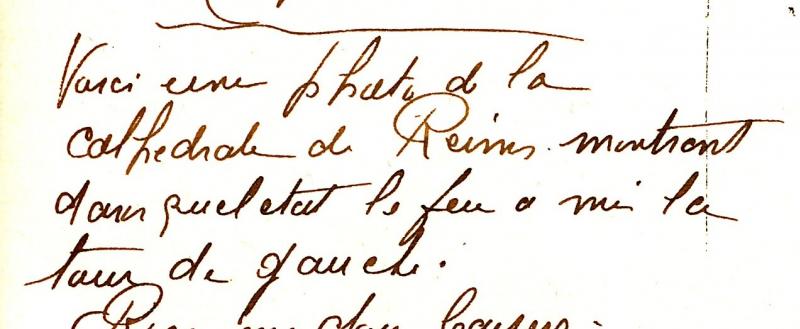 Voici une photo de la
cathedrale de Reims montrant
dans quel etat le feu a mis la
tour de gauche.